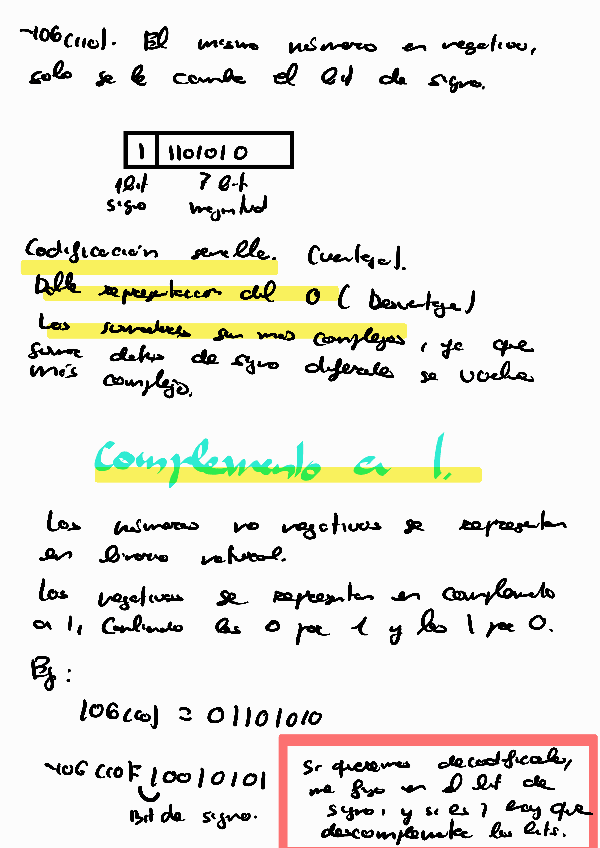 -106(10). El mismo número en negativo,
solo se le cambia el bit de signo.
1 1101010
1 bit 7 bit
signo magnitud
Codificación sencilla. (Ventaja).
Doble representación del 0 (Desventaja)
Los sumadores son mas complejos, ya que
sumar datos de signo diferentes se vuelve
más complejo.
Complemento a 1.
Los números no negativos se representan
en binario natural.
Los negativos se representan en complemento
a 1, cambiando los 0 por 1 y los 1 por 0.
Ej:
106(10) = 01101010
-106(10)= 10010101
Bit de signo.
Si queremos decodificarlo,
me fijo en el bit de
signo, y si es 1 hay que
descomplementar los bits.